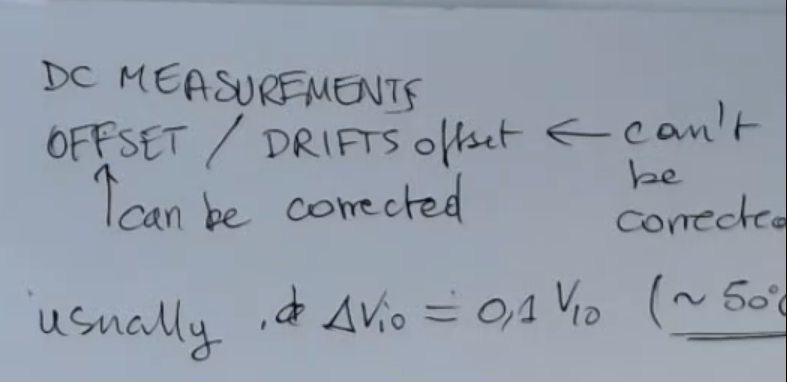 DC MEASUREMENTS
OFFSET / DRIFTS offset ← can't
be
↑ can be corrected correcte
usually, ΔVio = 0,1 Vio (~ 50°C